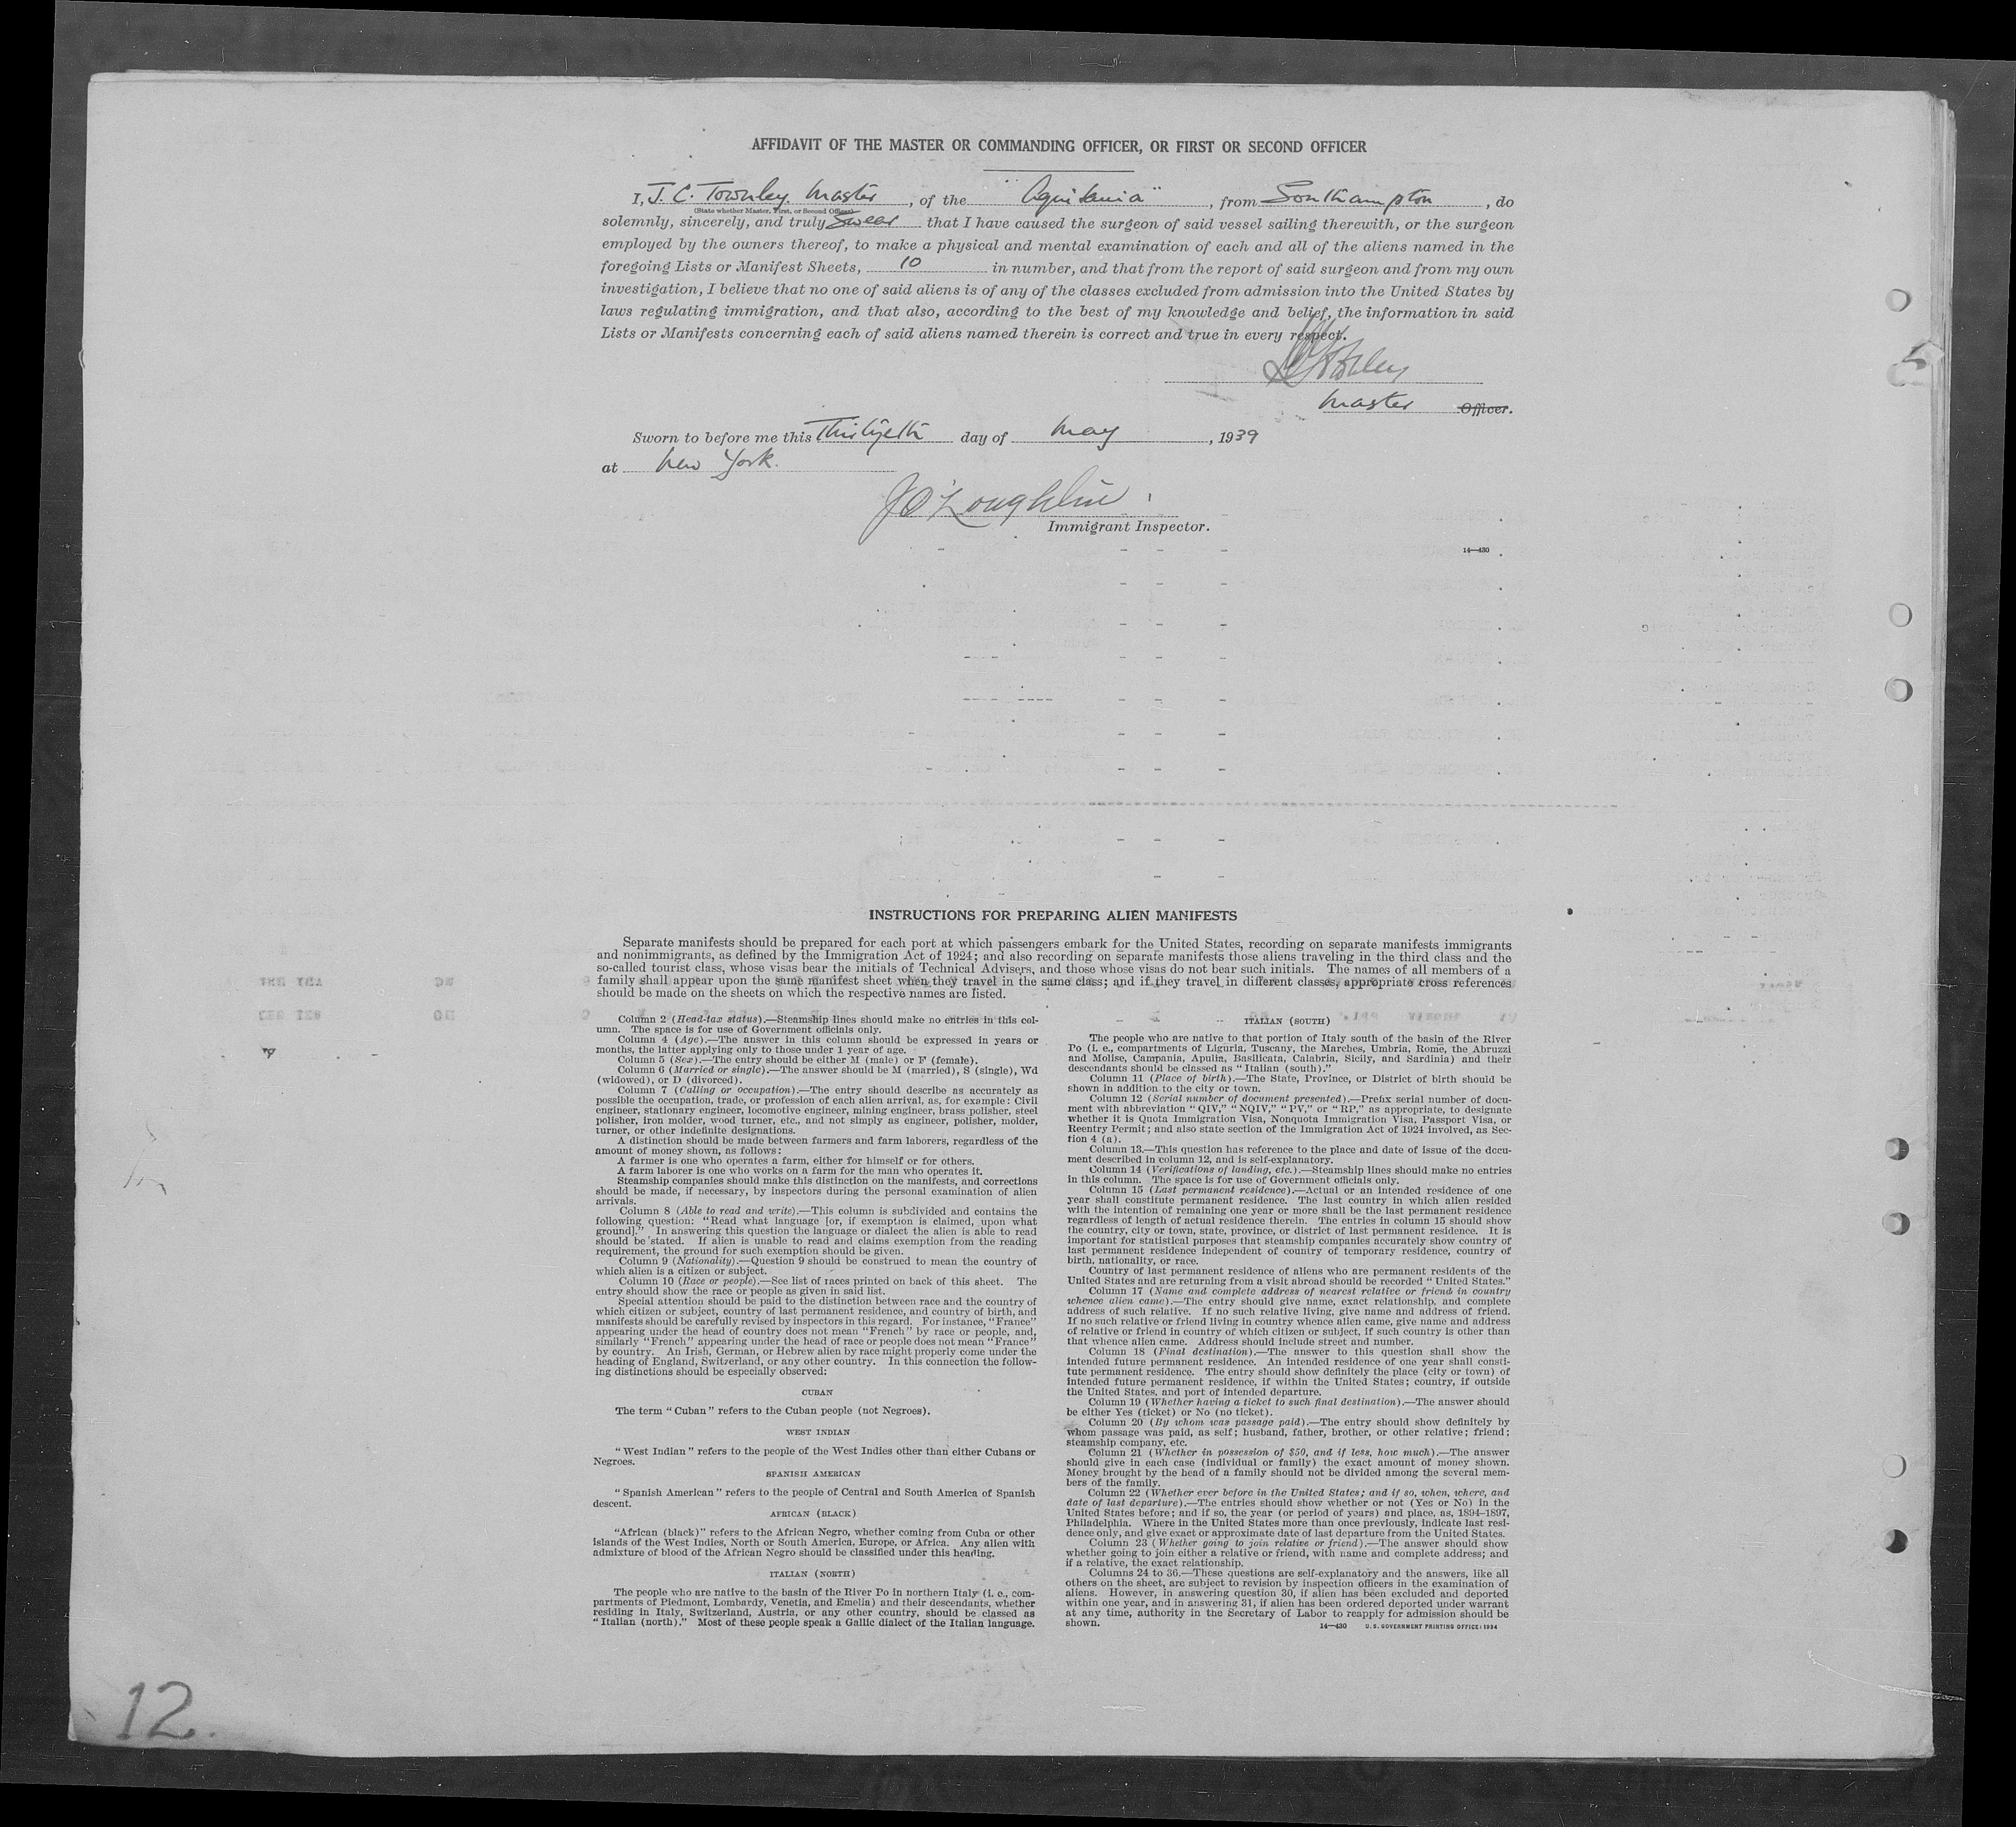 AFFIDAVIT OF THE MASTER OR COMMANDING OFFICER, OR FIRST OR SECOND OFFICER
I, J. C. Townley. Master, of the "Aquitania", from Southampton, do
(State whether Master, First, or Second Officer)
solemnly, sincerely, and truly Swear that I have caused the surgeon of said vessel sailing therewith, or the surgeon
employed by the owners thereof, to make a physical and mental examination of each and all of the aliens named in the
foregoing Lists or Manifest Sheets, 10 in number, and that from the report of said surgeon and from my own
investigation, I believe that no one of said aliens is of any of the classes excluded from admission into the United States by
laws regulating immigration, and that also, according to the best of my knowledge and belief, the information in said
Lists or Manifests concerning each of said aliens named therein is correct and true in every respect.
Master Officer.
Sworn to before me this Thirtyeth day of May, 1939
at New York.
J O'Loughlin
Immigrant Inspector.
14—430
INSTRUCTIONS FOR PREPARING ALIEN MANIFESTS
Separate manifests should be prepared for each port at which passengers embark for the United States, recording on separate manifests immigrants
and nonimmigrants, as defined by the Immigration Act of 1924; and also recording on separate manifests those aliens traveling in the third class and the
so-called tourist class, whose visas bear the initials of Technical Advisers, and those whose visas do not bear such initials. The names of all members of a
family shall appear upon the same manifest sheet when they travel in the same class; and if they travel in different classes, appropriate cross references
should be made on the sheets on which the respective names are listed.
Column 2 (Head-tax status).—Steamship lines should make no entries in this col-
umn. The space is for use of Government officials only.
Column 4 (Age).—The answer in this column should be expressed in years or
months, the latter applying only to those under 1 year of age.
Column 5 (Sex).—The entry should be either M (male) or F (female).
Column 6 (Married or single).—The answer should be M (married), S (single), Wd
(widowed), or D (divorced).
Column 7 (Calling or occupation).—The entry should describe as accurately as
possible the occupation, trade, or profession of each alien arrival, as, for example: Civil
engineer, stationary engineer, locomotive engineer, mining engineer, brass polisher, steel
polisher, iron molder, wood turner, etc., and not simply as engineer, polisher, molder,
turner, or other indefinite designations.
A distinction should be made between farmers and farm laborers, regardless of the
amount of money shown, as follows:
A farmer is one who operates a farm, either for himself or for others.
A farm laborer is one who works on a farm for the man who operates it.
Steamship companies should make this distinction on the manifests, and corrections
should be made, if necessary, by inspectors during the personal examination of alien
arrivals.
Column 8 (Able to read and write).—This column is subdivided and contains the
following question: "Read what language [or, if exemption is claimed, upon what
ground]." In answering this question the language or dialect the alien is able to read
should be stated. If alien is unable to read and claims exemption from the reading
requirement, the ground for such exemption should be given.
Column 9 (Nationality).—Question 9 should be construed to mean the country of
which alien is a citizen or subject.
Column 10 (Race or people).—See list of races printed on back of this sheet. The
entry should show the race or people as given in said list.
Special attention should be paid to the distinction between race and the country of
which citizen or subject, country of last permanent residence, and country of birth, and
manifests should be carefully revised by inspectors in this regard. For instance, "France"
appearing under the head of country does not mean "French" by race or people, and,
similarly "French" appearing under the head of race or people does not mean "France"
by country. An Irish, German, or Hebrew alien by race might properly come under the
heading of England, Switzerland, or any other country. In this connection the follow-
ing distinctions should be especially observed:
CUBAN
The term "Cuban" refers to the Cuban people (not Negroes).
WEST INDIAN
"West Indian" refers to the people of the West Indies other than either Cubans or
Negroes.
SPANISH AMERICAN
"Spanish American" refers to the people of Central and South America of Spanish
descent.
AFRICAN (BLACK)
"African (black)" refers to the African Negro, whether coming from Cuba or other
islands of the West Indies, North or South America, Europe, or Africa. Any alien with
admixture of blood of the African Negro should be classified under this heading.
ITALIAN (NORTH)
The people who are native to the basin of the River Po in northern Italy (i. e., com-
partments of Piedmont, Lombardy, Venetia, and Emelia) and their descendants, whether
residing in Italy, Switzerland, Austria, or any other country, should be classed as
"Italian (north)." Most of these people speak a Gallic dialect of the Italian language.
ITALIAN (SOUTH)
The people who are native to that portion of Italy south of the basin of the River
Po (i. e., compartments of Liguria, Tuscany, the Marches, Umbria, Rome, the Abruzzi
and Molise, Campania, Apulia, Basilicata, Calabria, Sicily, and Sardinia) and their
descendants should be classed as "Italian (south)."
Column 11 (Place of birth).—The State, Province, or District of birth should be
shown in addition to the city or town.
Column 12 (Serial number of document presented).—Prefix serial number of docu-
ment with abbreviation "QIV," "NQIV," "PV," or "RP," as appropriate, to designate
whether it is Quota Immigration Visa, Nonquota Immigration Visa, Passport Visa, or
Reentry Permit; and also state section of the Immigration Act of 1924 involved, as Sec-
tion 4 (a).
Column 13.—This question has reference to the place and date of issue of the docu-
ment described in column 12, and is self-explanatory.
Column 14 (Verifications of landing, etc.).—Steamship lines should make no entries
in this column. The space is for use of Government officials only.
Column 15 (Last permanent residence).—Actual or an intended residence of one
year shall constitute permanent residence. The last country in which alien resided
with the intention of remaining one year or more shall be the last permanent residence
regardless of length of actual residence therein. The entries in column 15 should show
the country, city or town, state, province, or district of last permanent residence. It is
important for statistical purposes that steamship companies accurately show country of
last permanent residence independent of country of temporary residence, country of
birth, nationality, or race.
Country of last permanent residence of aliens who are permanent residents of the
United States and are returning from a visit abroad should be recorded "United States."
Column 17 (Name and complete address of nearest relative or friend in country
whence alien came).—The entry should give name, exact relationship, and complete
address of such relative. If no such relative living, give name and address of friend.
If no such relative or friend living in country whence alien came, give name and address
of relative or friend in country of which citizen or subject, if such country is other than
that whence alien came. Address should include street and number.
Column 18 (Final destination).—The answer to this question shall show the
intended future permanent residence. An intended residence of one year shall consti-
tute permanent residence. The entry should show definitely the place (city or town) of
intended future permanent residence, if within the United States; country, if outside
the United States, and port of intended departure.
Column 19 (Whether having a ticket to such final destination).—The answer should
be either Yes (ticket) or No (no ticket).
Column 20 (By whom was passage paid).—The entry should show definitely by
whom passage was paid, as self; husband, father, brother, or other relative; friend;
steamship company, etc.
Column 21 (Whether in possession of $50, and if less, how much).—The answer
should give in each case (individual or family) the exact amount of money shown.
Money brought by the head of a family should not be divided among the several mem-
bers of the family.
Column 22 (Whether ever before in the United States; and if so, when, where, and
date of last departure).—The entries should show whether or not (Yes or No) in the
United States before; and if so, the year (or period of years) and place, as, 1894–1897,
Philadelphia. Where in the United States more than once previously, indicate last resi-
dence only, and give exact or approximate date of last departure from the United States.
Column 23 (Whether going to join relative or friend).—The answer should show
whether going to join either a relative or friend, with name and complete address; and
if a relative, the exact relationship.
Columns 24 to 36.—These questions are self-explanatory and the answers, like all
others on the sheet, are subject to revision by inspection officers in the examination of
aliens. However, in answering question 30, if alien has been excluded and deported
within one year, and in answering 31, if alien has been ordered deported under warrant
at any time, authority in the Secretary of Labor to reapply for admission should be
shown.
14—430 U. S. GOVERNMENT PRINTING OFFICE: 1934
12.